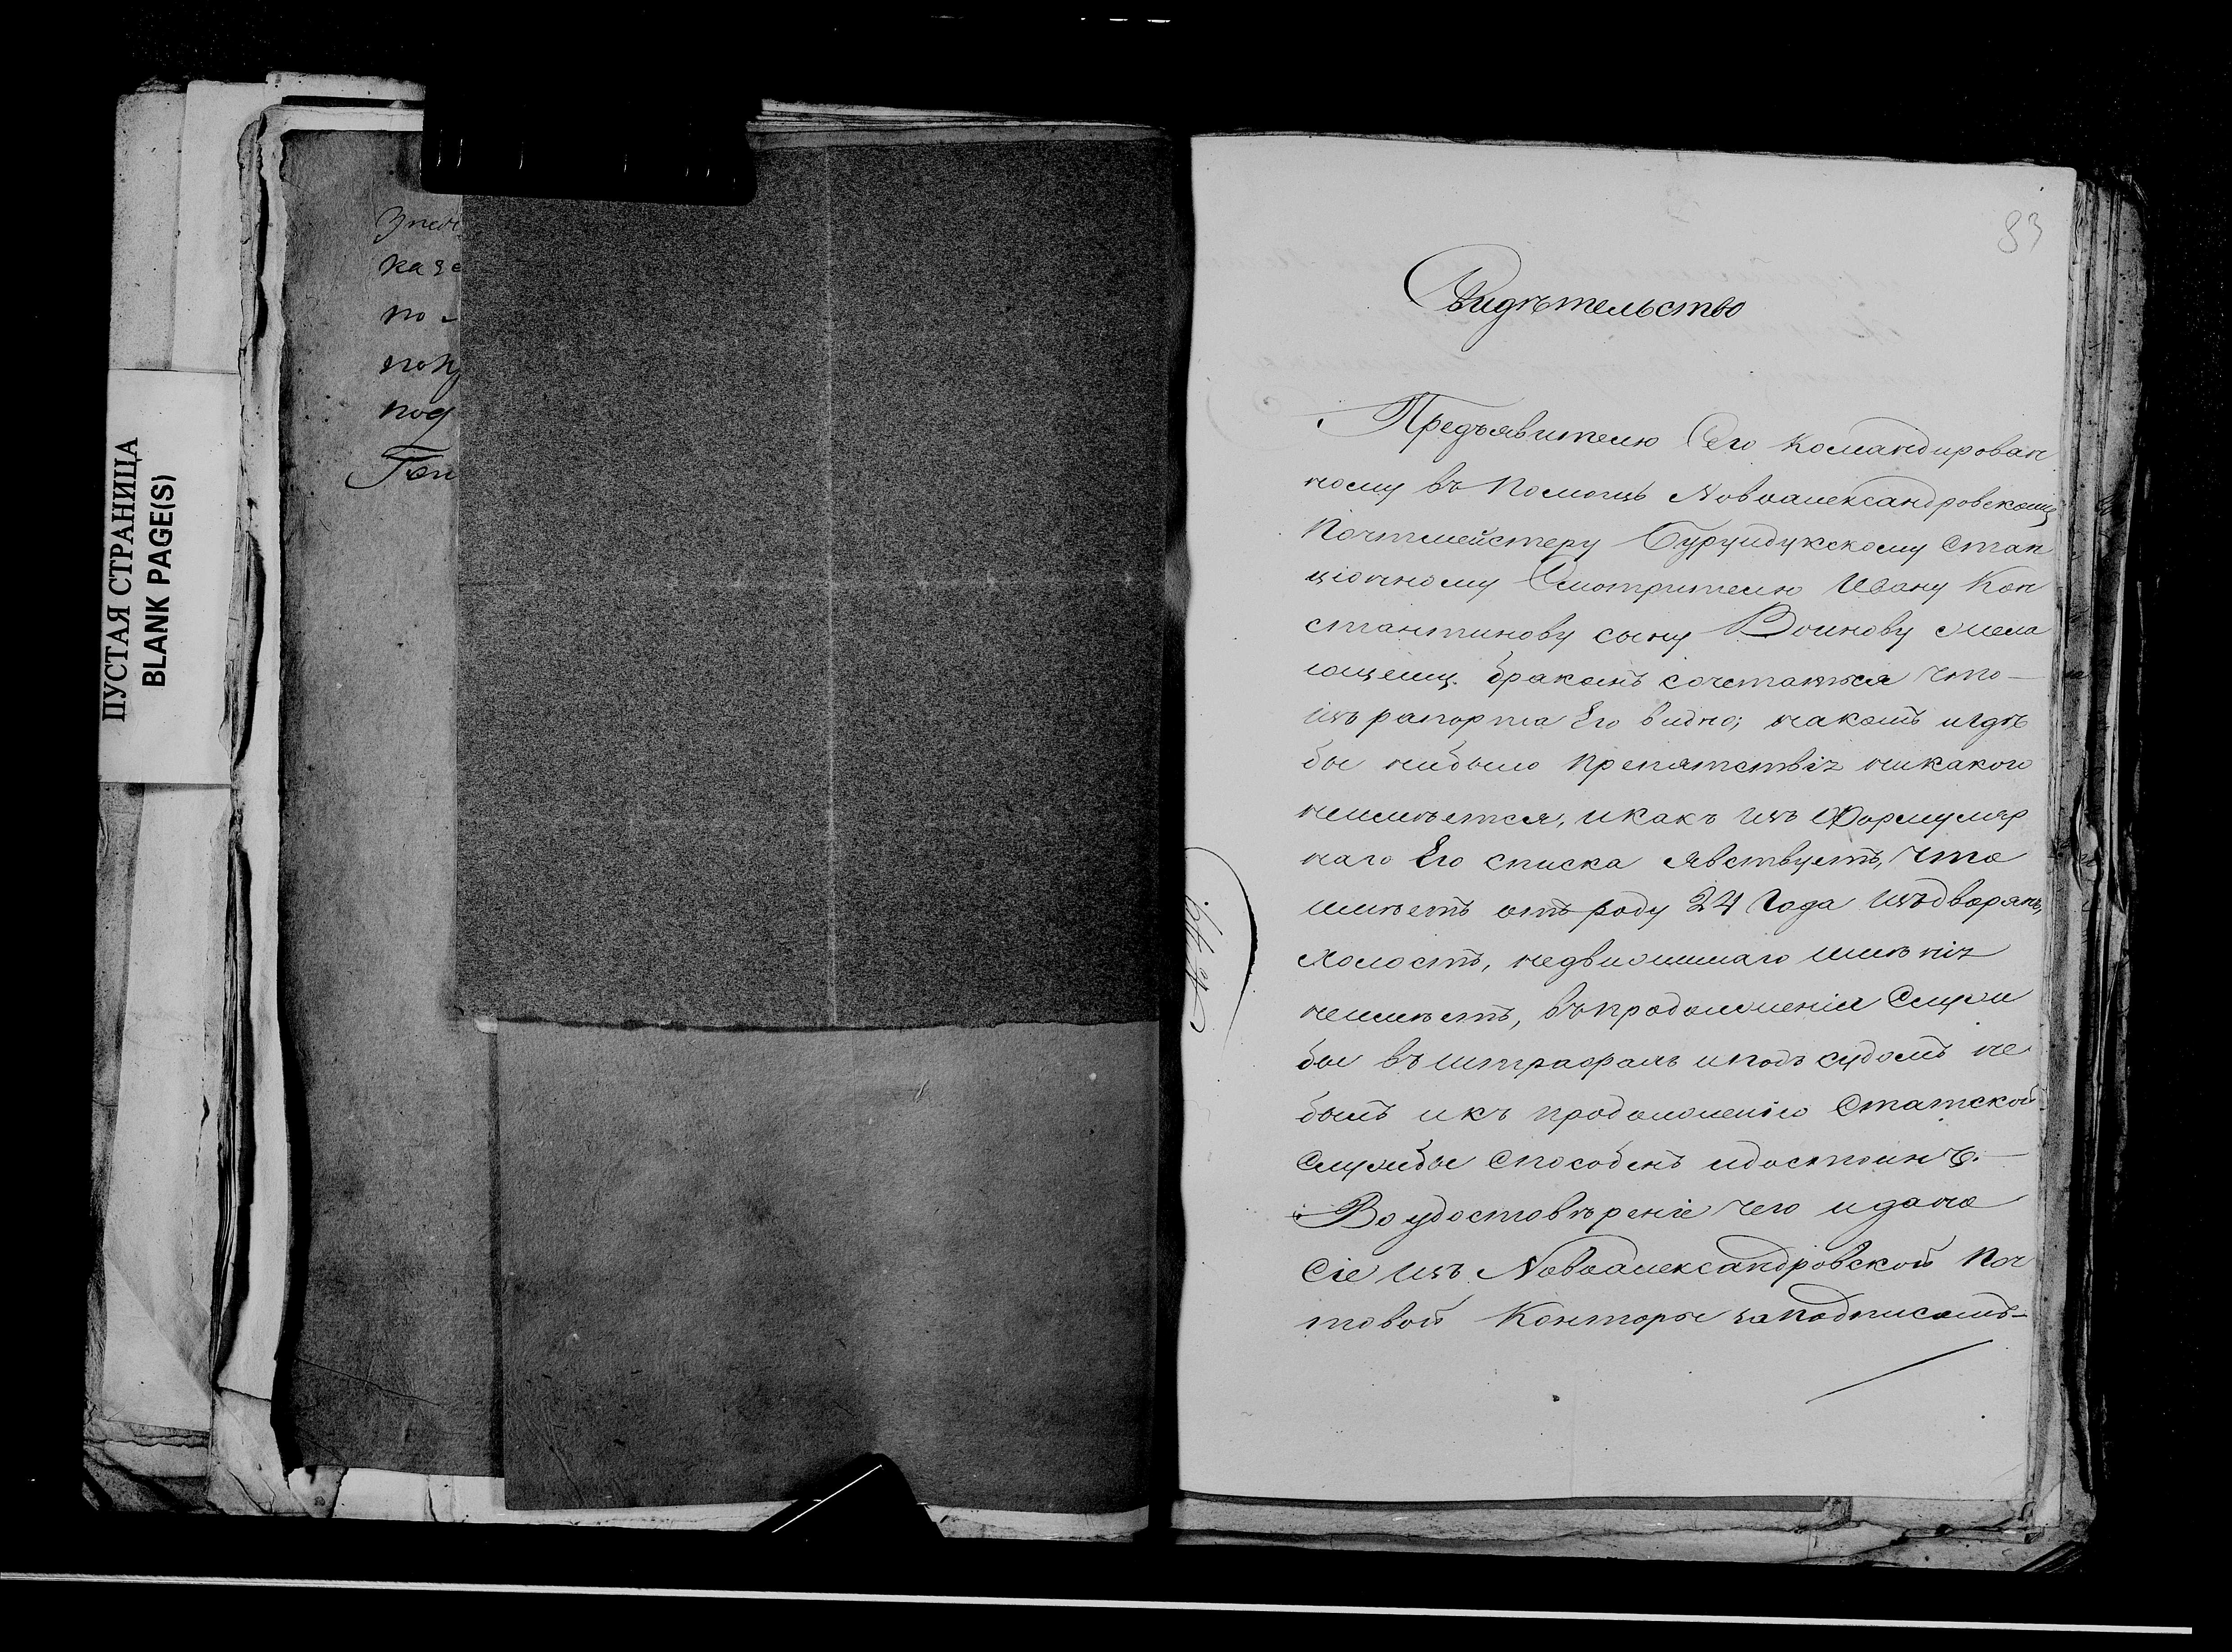 ПУСТАЯ СТРАНИЦА
BLANK PAGE(S)
казе
по
под
83
Свидѣтельство
Предъявителю Сего командирован
ному въ помощь Новоалександровскому
Почтмейстеру Бурундукскому Стан
ціонному Смотрителю Ивану Кон
стантинову сыну Воинову жела
ющему бракомъ сочетаться что
изъ рапорта Его видно; какомъ игдѣ
бы нибыло препятствія никакого
неимѣется, икакъ изъ Формуляр
наго Его списка Явствуетъ, что
имѣетъ отъ роду 24 Года изъдворянъ,
холостъ, недвижимаго имѣнія
неимѣетъ, въпродолженіи Служ
бы въ штрафахъ иподъ судомъ не
былъ икъ продолженію Статской
Службы Способенъ идостоинъ.
Во удостовѣреніе чего идано
Сіе изъ Новоалександровской Поч
товой Конторы заподписомъ